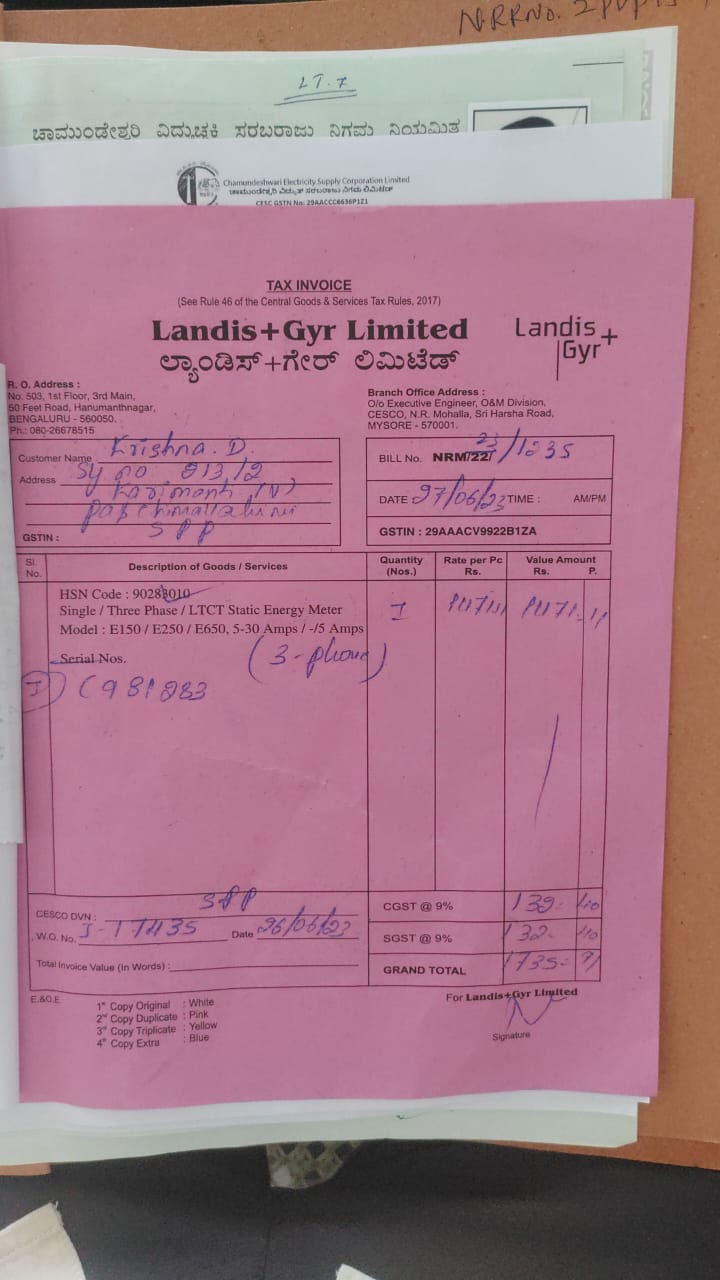 LT.7
ಚಾಮುಂಡೇಶ್ವರಿ ವಿದ್ಯುಚ್ಛಕ್ತಿ ಸರಬರಾಜು ನಿಗಮ ನಿಯಮಿತ
Chamundeshwari Electricity Supply Corporation Limited
CESC GSTN No: 29AACCC6636P1Z1
TAX INVOICE
(See Rule 46 of the Central Goods & Services Tax Rules, 2017)
Landis+Gyr Limited
Landis+
Gyr
ಲ್ಯಾಂಡಿಸ್+ಗೇರ್ ಲಿಮಿಟೆಡ್
R. O. Address :
No. 503, 1st Floor, 3rd Main,
50 Feet Road, Hanumanthnagar,
BENGALURU - 560050.
Ph.: 080-26678515
Branch Office Address :
O/o Executive Engineer, O&M Division,
CESCO, N.R. Mohalla, Sri Harsha Road,
MYSORE - 570001.
Customer Name Krishna. D.
Address Sy no 813/2
GSTIN : SPP
BILL No. NRM/22/ 23/1235
DATE 27/06/23 TIME : AM/PM
GSTIN : 29AAACV9922B1ZA
Sl. No. Description of Goods / Services Quantity (Nos.) Rate per Pc Rs. Value Amount Rs. P.
HSN Code : 90283010
Single / Three Phase / LTCT Static Energy Meter
Model : E150 / E250 / E650, 5-30 Amps / -/5 Amps
Serial Nos.
CESCO DVN : SPP
W.O. No. Date 26/06/23
Total Invoice Value (In Words) :
CGST @ 9%
SGST @ 9% 132- 40
GRAND TOTAL 1735-
E.&O.E
1st Copy Original : White
2nd Copy Duplicate : Pink
3rd Copy Triplicate : Yellow
4th Copy Extra : Blue
For Landis+Gyr Limited
Signature